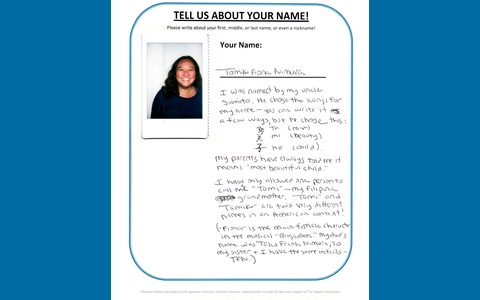 TELL US ABOUT YOUR NAME!
Please write about your first, middle, or last name, or even a nickname!
Your Name:
Tamiko Fiona Nimura
I was named by my uncle
He chose the kanji for
my name - you can write it
a few ways, but he chose this:
Ta (many)
mi (beauty)
子 Ko (child).
my parents have always told me it
means "most beautiful child."
I have only allowed one person to
call me "Tami" - my Filipina
grandmother. "Tami" and
"Tamiko" are two very different
names in an American context!
("Fiona" is the main female character
in the musical "Brigadoon." My dad's
name was Taku Frank Nimura, so
my sister + I have the same initials -
TFN.)